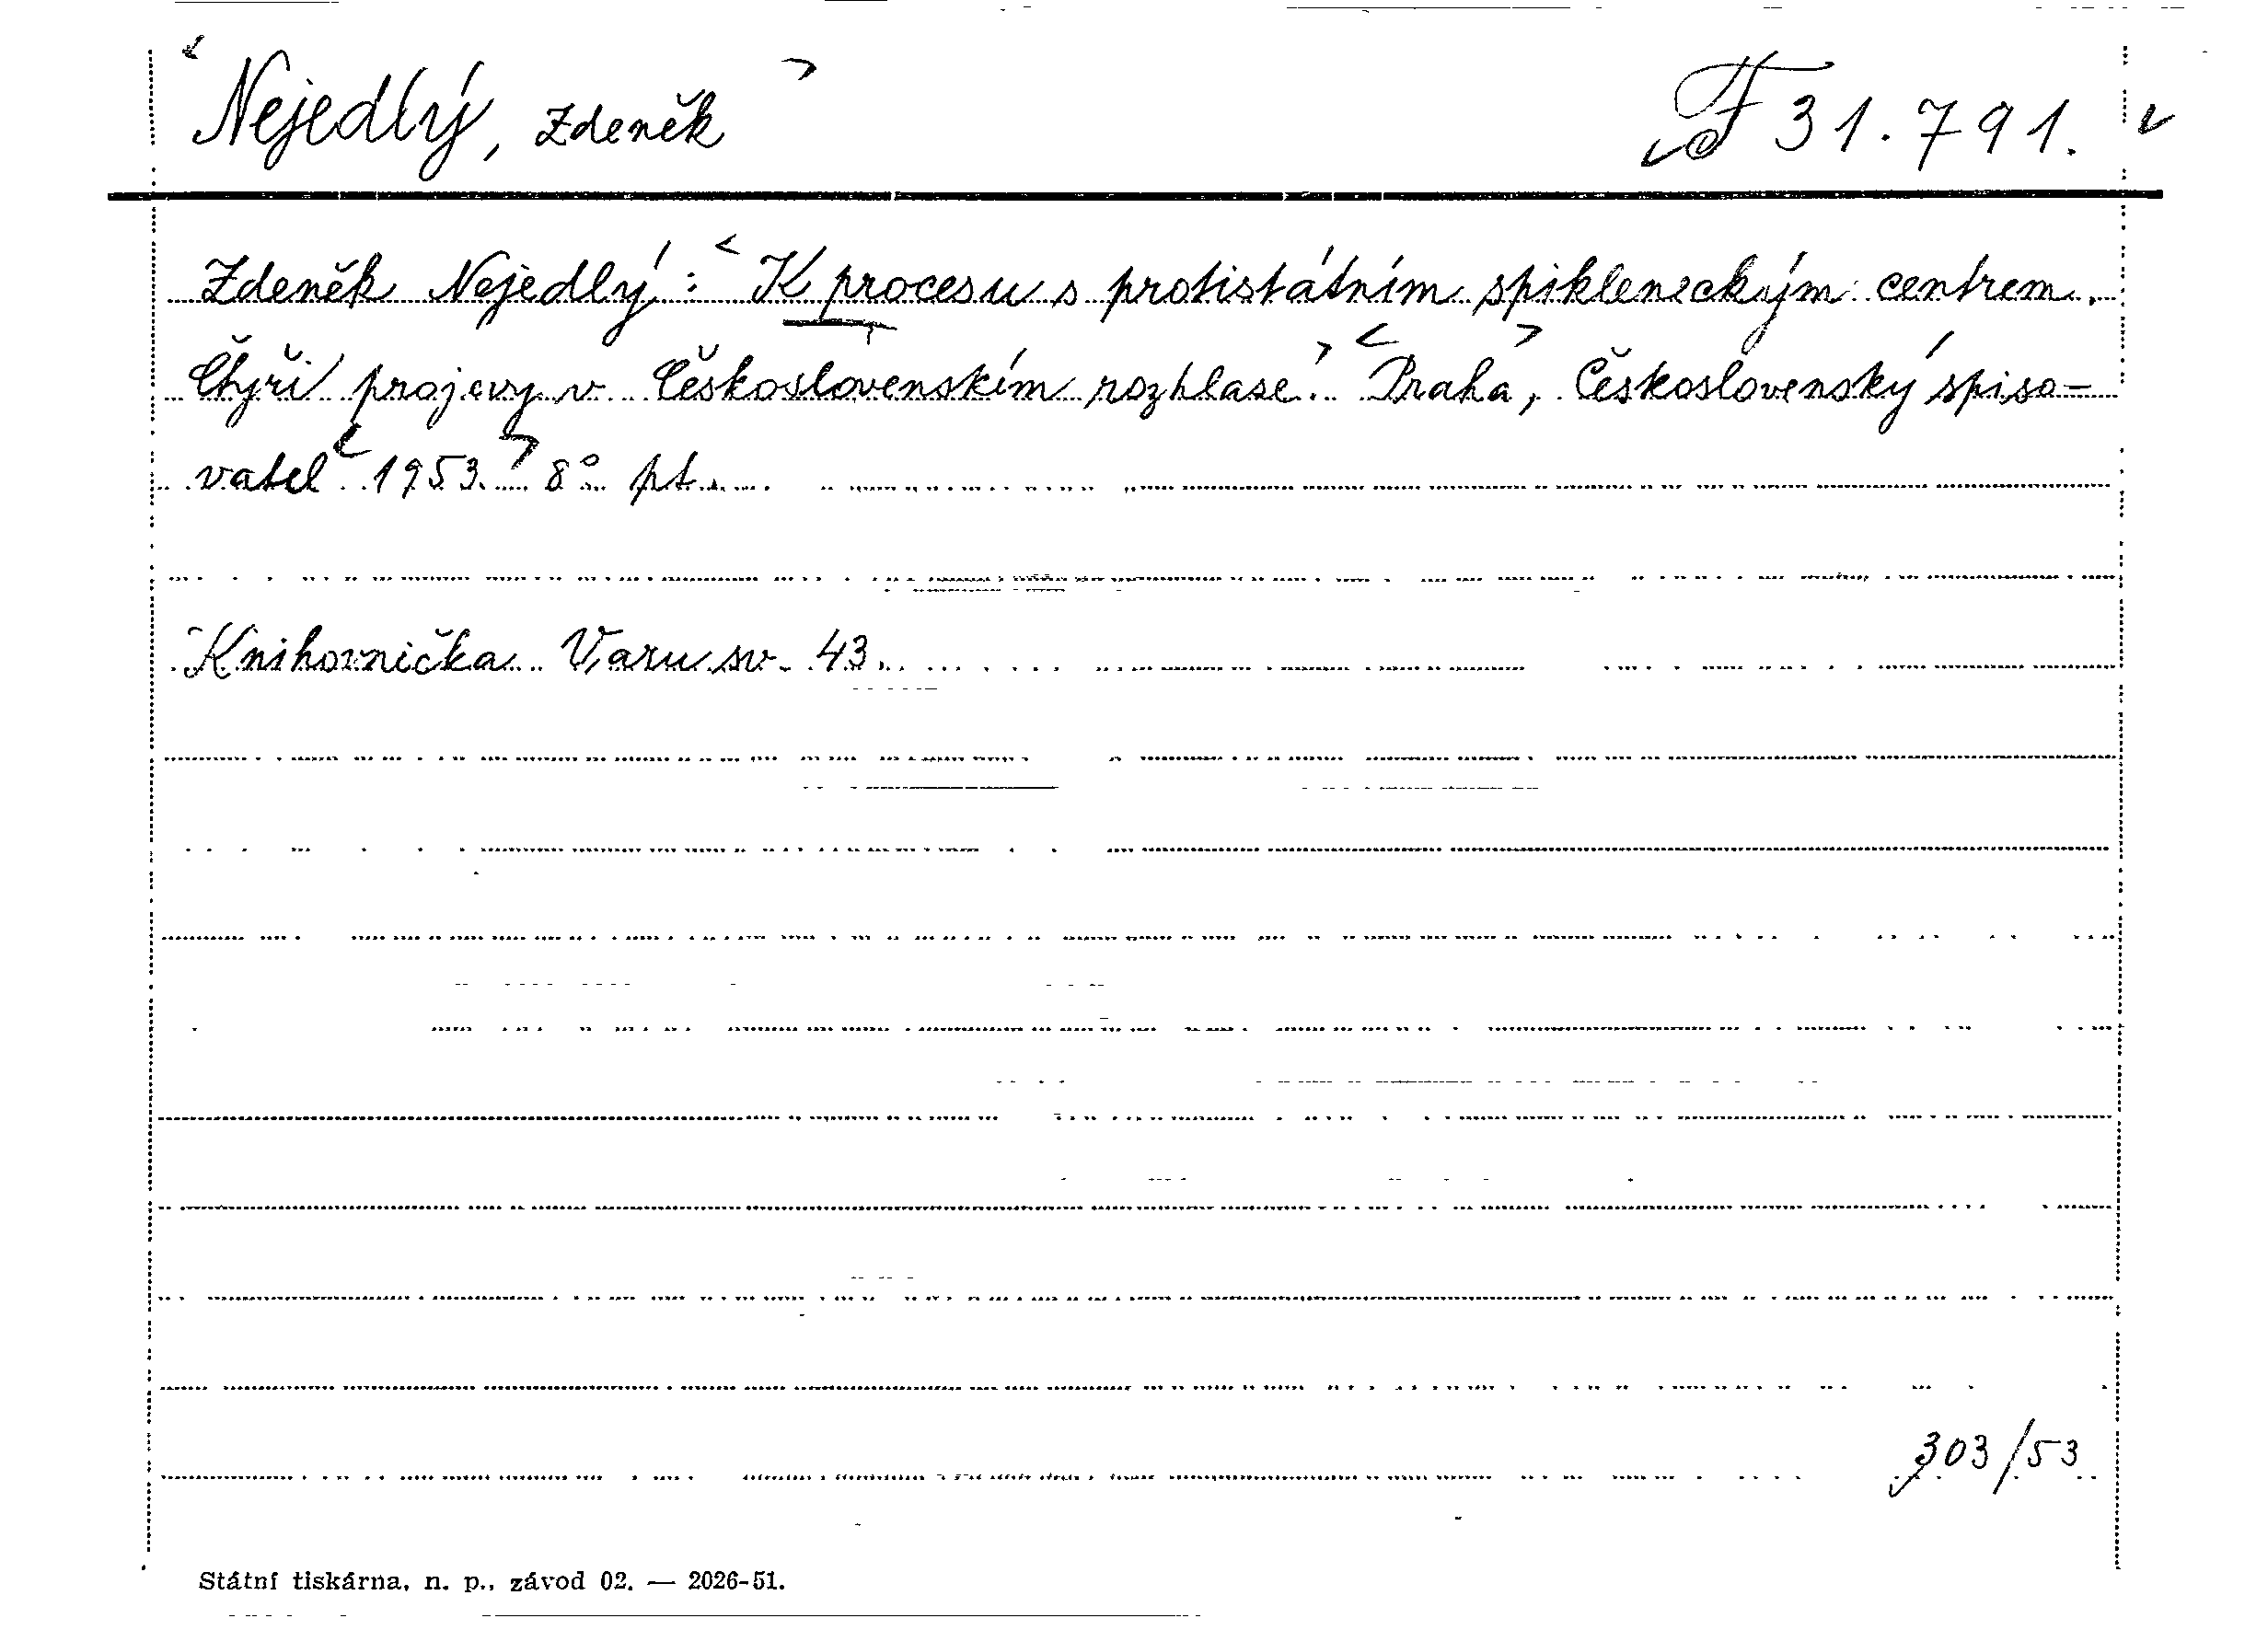 Nejedlý, Zdeněk
F 31.791.
Zdeněk Nejedlý: K procesu s protistátním spikleneckým centrem.
Čtyři projevy v Československém rozhlase. Praha, Československý spiso-
vatel 1953. 8° pt.
Knihovnička Varu sv. 43.
303/53
Státní tiskárna, n. p., závod 02. — 2026-51.